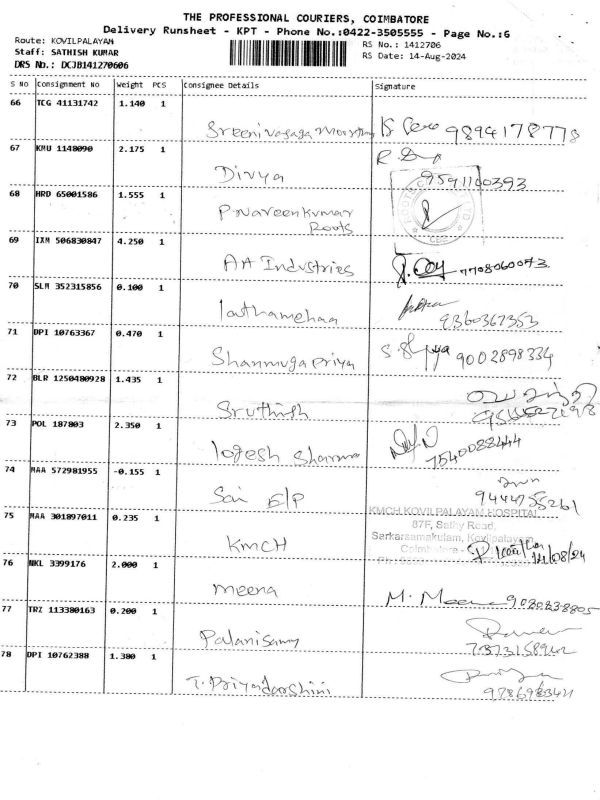 THE PROFESSIONAL COURIERS, COIMBATORE
Delivery Runsheet - KPT - Phone No.:0422-3505555 - Page No.:6
Route: KOVILPALAYAM
RS No.: 1412706
Staff: SATHISH KUMAR
RS Date: 14-Aug-2024
DRS No.: DCJB141270606
S No Consignment No Weight PCS Consignee Details Signature
66 TCG 41131742 1.140 1
9894178778
67 KMU 1148090 2.175 1
Divya 9591100393
68 HRD 65001586 1.555 1
Praveenkumar
Roots
69 IXM 506830847 4.250 1
AA Industries 7708060073
70 SLM 352315856 0.100 1
9360367353
71 DPI 10763367 0.470 1
Shanmuga priya 9002898334
72 BLR 1250480928 1.435 1
Sruthish
73 POL 187803 2.350 1
logesh Sharma
7540088444
74 MAA 572981955 -0.155 1
Sai E/P 9444755261
75 MAA 301897011 0.235 1
KMCH KOVILPALAYAM HOSPITAL
87F, Sathy Road,
Sarkarsamakulam, Kovilpalayam
Coimbatore -
KMCH 14/08/24
76 NKL 3399176 2.000 1
meena M. Meena 9080838805
77 TRZ 113380163 0.200 1
Palanisamy
78 DPI 10762388 1.380 1
T. Priyadarshini